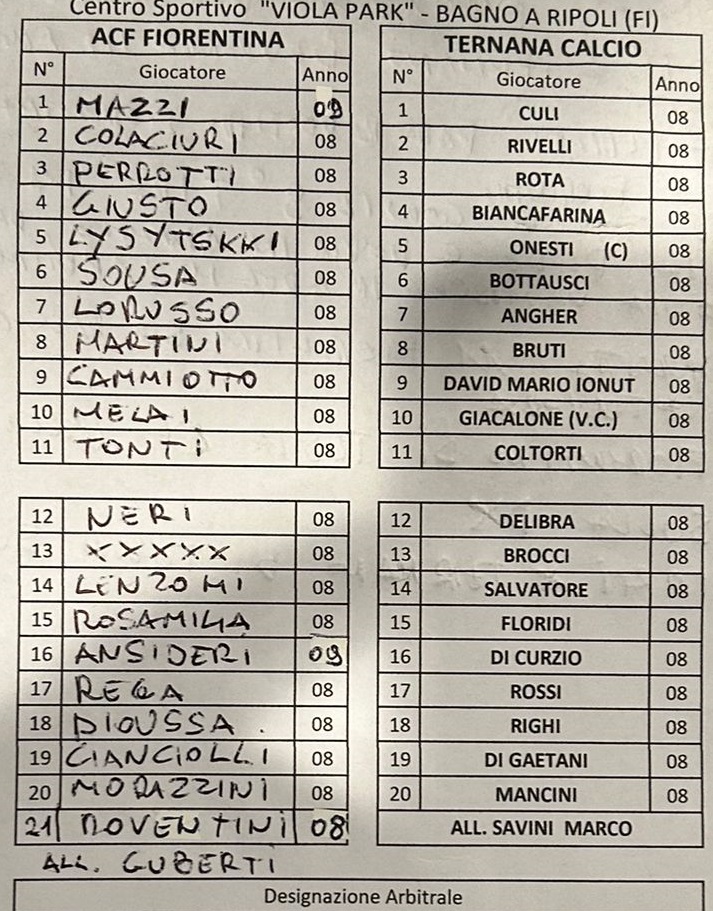 Centro Sportivo "VIOLA PARK" - BAGNO A RIPOLI (FI)
ACF FIORENTINA
N° Giocatore Anno
1 MAZZI 09
2 COLACIURI 08
3 PERROTTI 08
4 GIUSTO 08
5 LYSYTSKKI 08
6 SOUSA 08
7 LORUSSO 08
8 MARTINI 08
9 CAMMIOTTO 08
10 MELAI 08
11 TONTI 08
12 NERI 08
13 XXXXX 08
14 LENZOMI 08
15 ROSAMILIA 08
16 ANSIDERI 09
17 REGA 08
18 DIOUSSA 08
19 CIANCIOLLI 08
20 MORAZZINI 08
21 ROVENTINI 08
ALL. GUBERTI
TERNANA CALCIO
N° Giocatore Anno
1 CULI 08
2 RIVELLI 08
3 ROTA 08
4 BIANCAFARINA 08
5 ONESTI (C) 08
6 BOTTAUSCI 08
7 ANGHER 08
8 BRUTI 08
9 DAVID MARIO IONUT 08
10 GIACALONE (V.C.) 08
11 COLTORTI 08
12 DELIBRA 08
13 BROCCI 08
14 SALVATORE 08
15 FLORIDI 08
16 DI CURZIO 08
17 ROSSI 08
18 RIGHI 08
19 DI GAETANI 08
20 MANCINI 08
ALL. SAVINI MARCO
Designazione Arbitrale